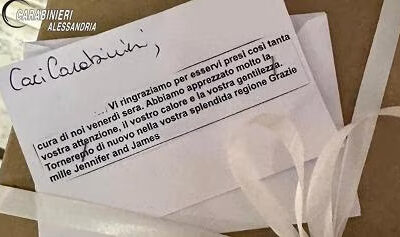 CARABINIERI
ALESSANDRIA
Cari Carabinieri,
... Vi ringraziamo per esservi presi così tanta
cura di noi venerdi sera. Abbiamo apprezzato molto la
vostra attenzione, il vostro calore e la vostra gentilezza.
Torneremo di nuovo nella vostra splendida regione Grazie
mille Jennifer and James